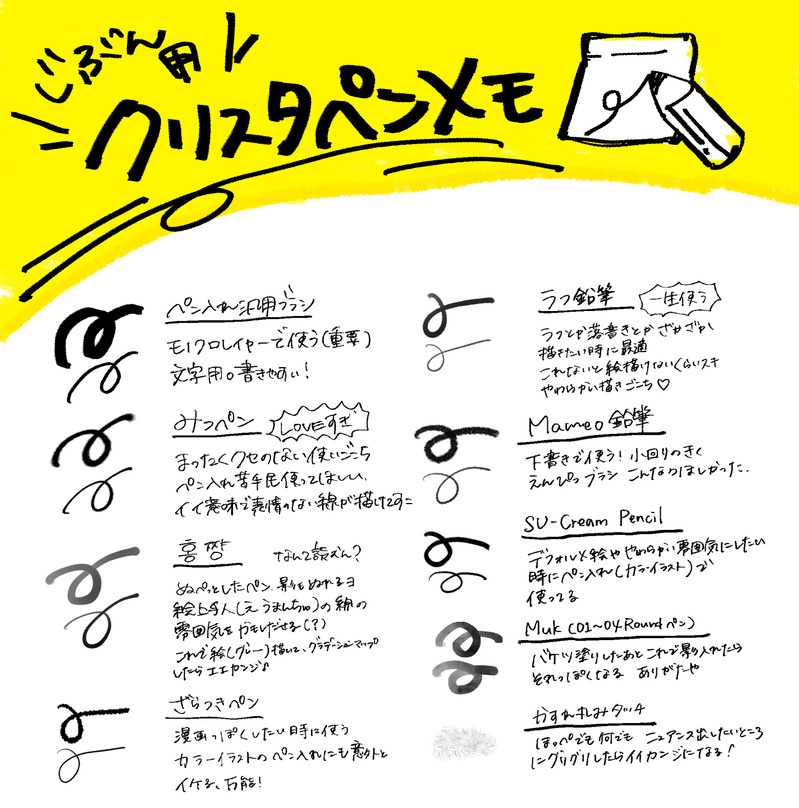 じぶん用
クリスタペンメモ
ペン入れ汎用ブラシ
モノクロレイヤーで使う(重要)
文字用。書きやすい!
みつペン
LOVEすぎ
まったくクセのない使いごこち
ペン入れ苦手民使ってほしい、
イイ意味で表情のない線が描けてすこ
홍짱
なんて読むん?
ぬぺっとしたペン、影もぬれるヨ
絵上手人(えうまんちゅ)の線の
雰囲気をかもしだせる(?)
これで絵(グレー)描いて、グラデーションマップ
したらエエカンジ♪
ざらつきペン
漫画っぽくしたい時に使う
カラーイラストのペン入れにも意外と
イケる、万能!
ラフ鉛筆
一生使う
ラフとか落書きとかざかざか
描きたい時に最適
これないと絵描けないくらいスキ
やわらかい描きごこち♡
Mameo鉛筆
下書きで使う!小回りのきく
えんぴつブラシ こんなのほしかった..
SU-Cream Pencil
デフォルメ絵ややわらかい雰囲気にしたい
時にペン入れ(カラーイラスト)で
使ってる
Muk(01~04Roundペン)
バケツ塗りしたあとこれで影の入れたら
それっぽくなる ありがたや
かすれ丸みタッチ
ほっぺでも何でも ニュアンス出したいところ
にグリグリしたらイイカンジになる!